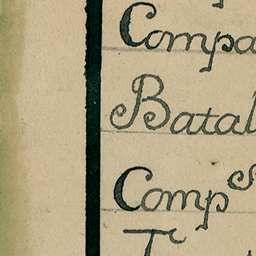 Compa
Batal
Comp s
T